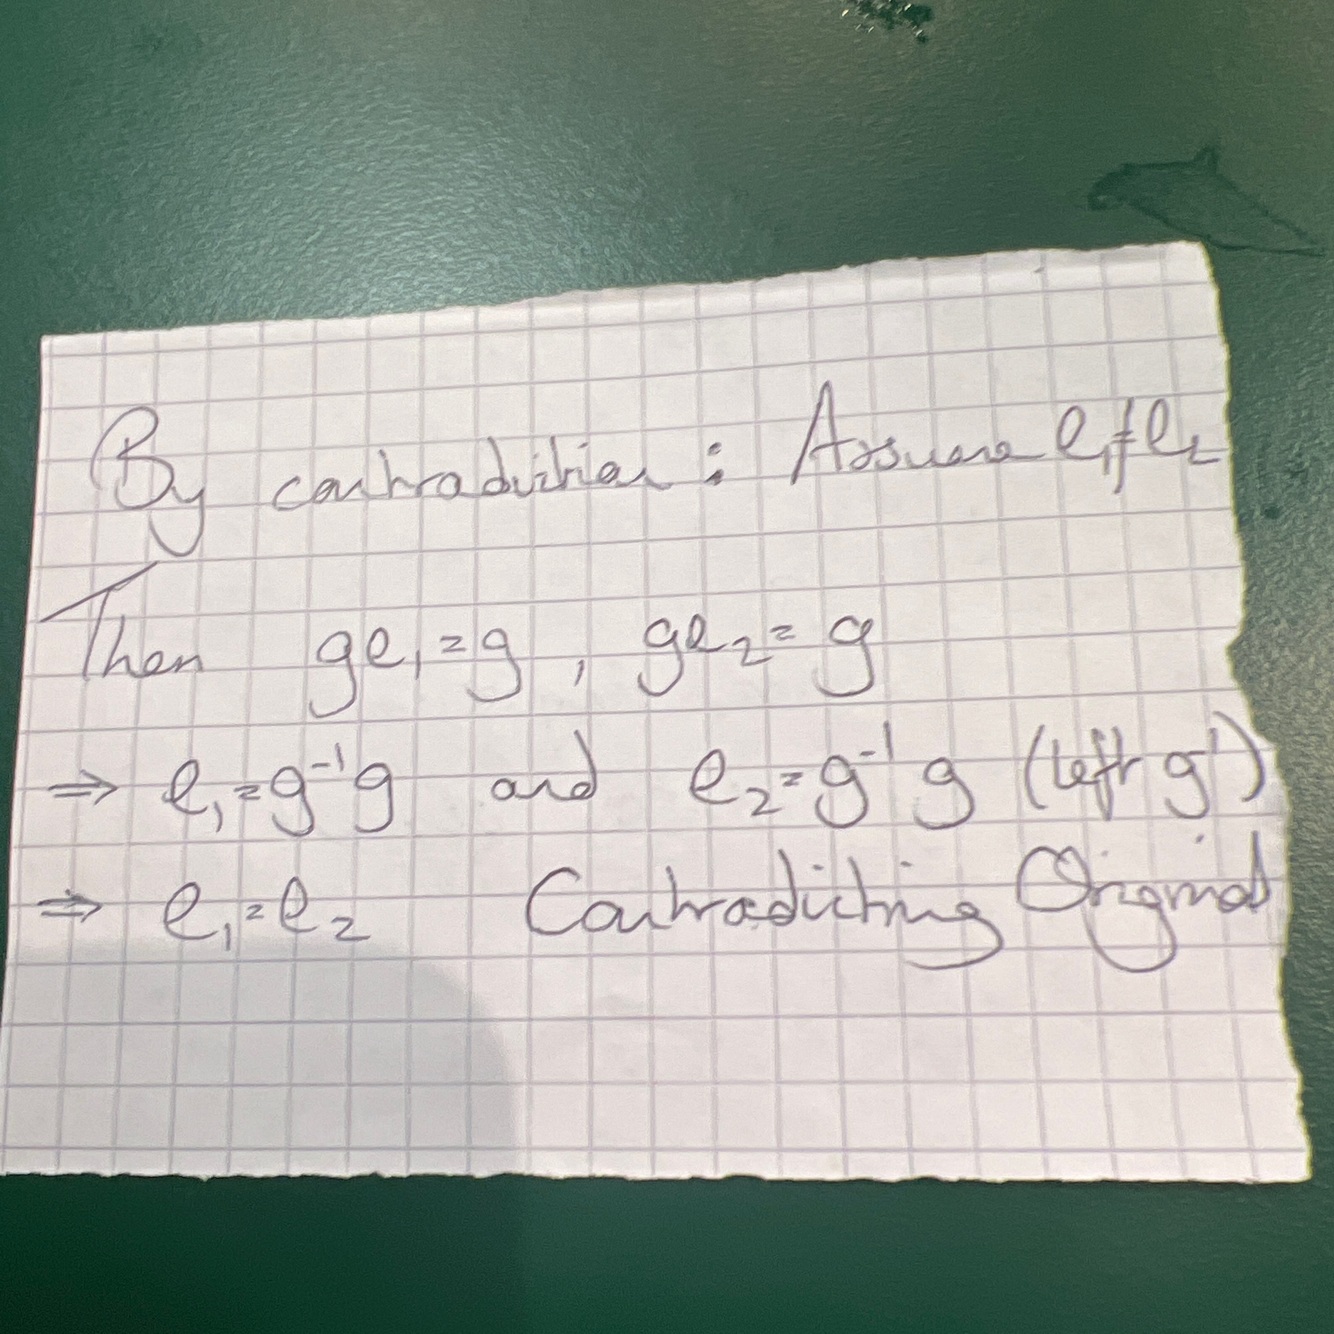 By contradiction : Assume e₁≠e₂
Then ge₁=g , ge₂=g
⇒ e₁=g⁻¹g and e₂=g⁻¹g (left g⁻¹)
⇒ e₁=e₂ Contradicting Original